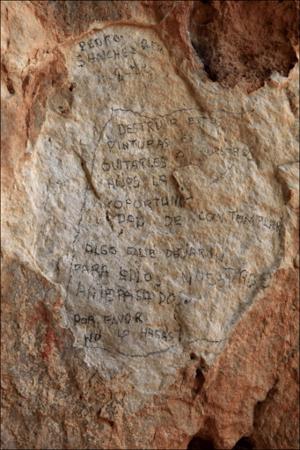 PEDRO
SANCHEZ
DESTRUIR ESTAS
PINTURAS ES
QUITARLES A NUESTROS
HIJOS LA
OPORTUNI
DAD DE CONTEMPLAR
ALGO QUE DEJARON
PARA ELLO, NUESTROS
ANTEPASADO
POR FAVOR
NO LO HAGAS